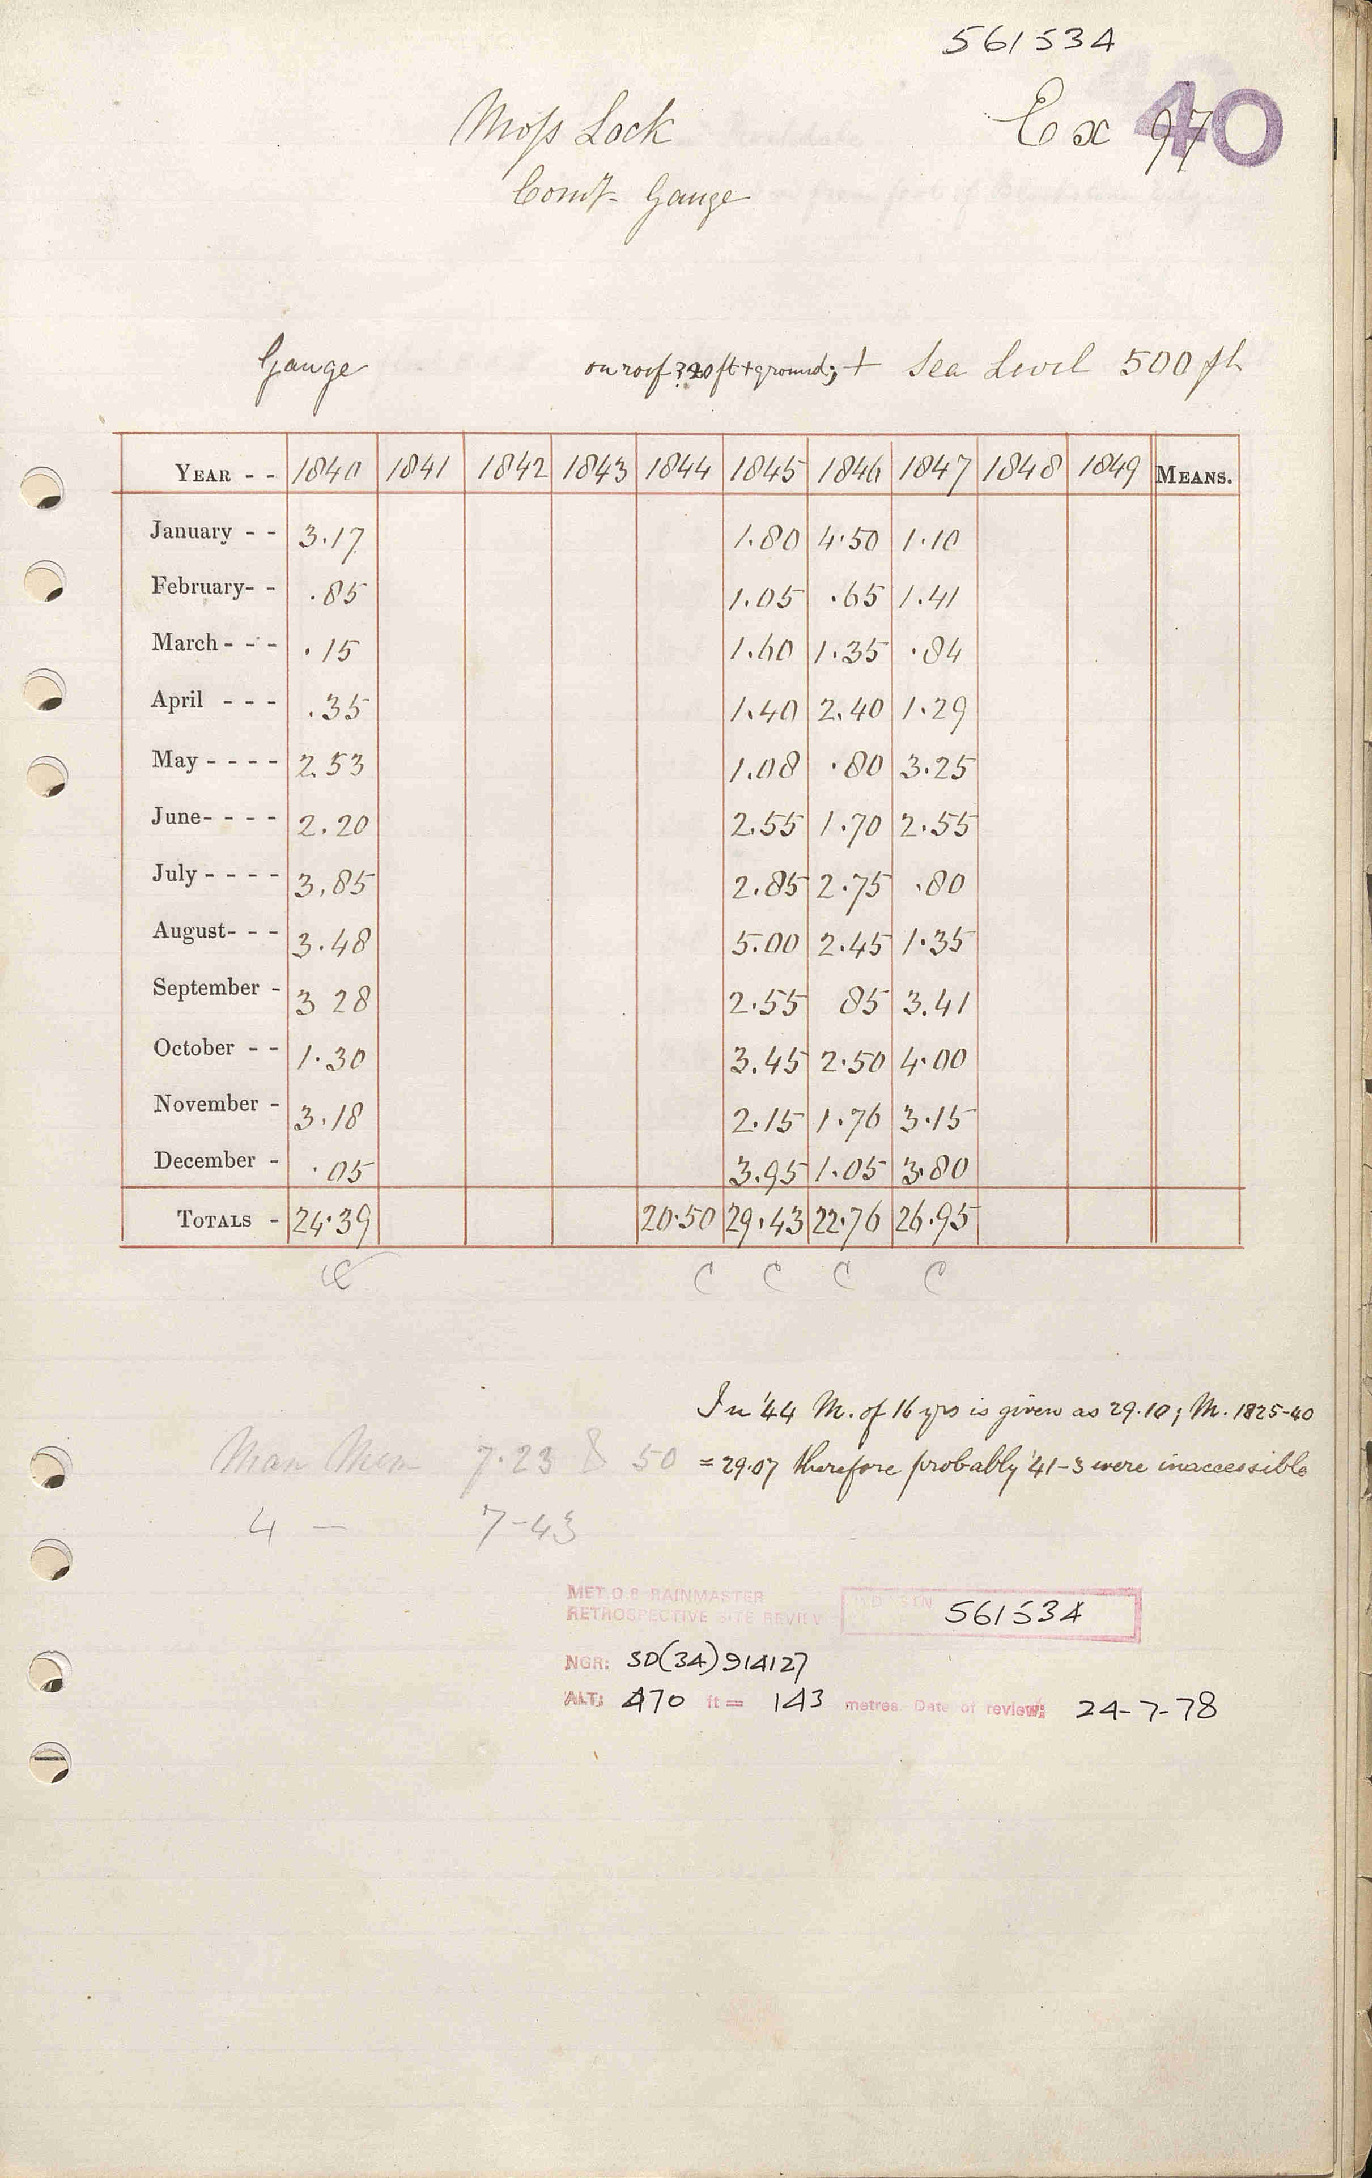 561534
Moss Lock
Ex 97
40
Comt. Gauge
Gauge on roof ? 20 ft + ground; + Sea Level 500 ft
YEAR - - 1840 1841 1842 1843 1844 1845 1846 1847 1848 1849 MEANS.
January - - 3.17 1.80 4.50 1.10
February- - .85 1.05 .65 1.41
March - - - .15 1.60 1.35 .84
April - - - .35 1.40 2.40 1.29
May - - - - 2.53 1.08 .80 3.25
June- - - - 2.20 2.55 1.70 2.55
July - - - - 3.85 2.85 2.75 .80
August- - - 3.48 5.00 2.45 1.35
September - 3 28 2.55 85 3.41
October - - 1.30 3.45 2.50 4.00
November - 3.18 2.15 1.76 3.15
December - .05 3.95 1.05 3.80
TOTALS - 24.39 20.50 29.43 22.76 26.95
C C C C C
In '44 M. of 16 yrs is given as 29.10; M. 1825-40
= 29.07 therefore probably '41-3 were inaccessible
Man Mem 7.23 & 50
4 — 7-43
MET.O.8 RAINMASTER
RETROSPECTIVE SITE REVIEW
STN 561534
NGR: SD(34)914127
ALT: 470 ft = 143 metres. Date of review: 24-7-78